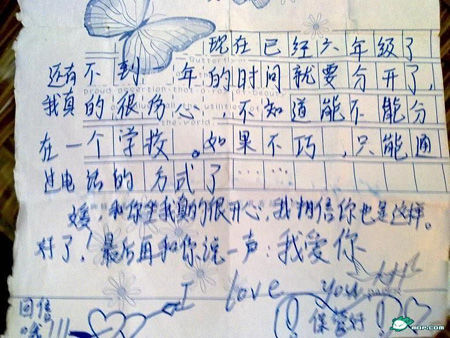 现在已经六年级了
还有不到一年的时间就要分开了，
我真的很伤心，不知道能不能分
在一个学校。如果不巧，只能通
过电话的方式了……
媛，和你坐我真的很开心，我相信你也是这样。
好了！最后再和你说一声：我爱你
I love you
回信
哦!!!
保管好
MOP.com